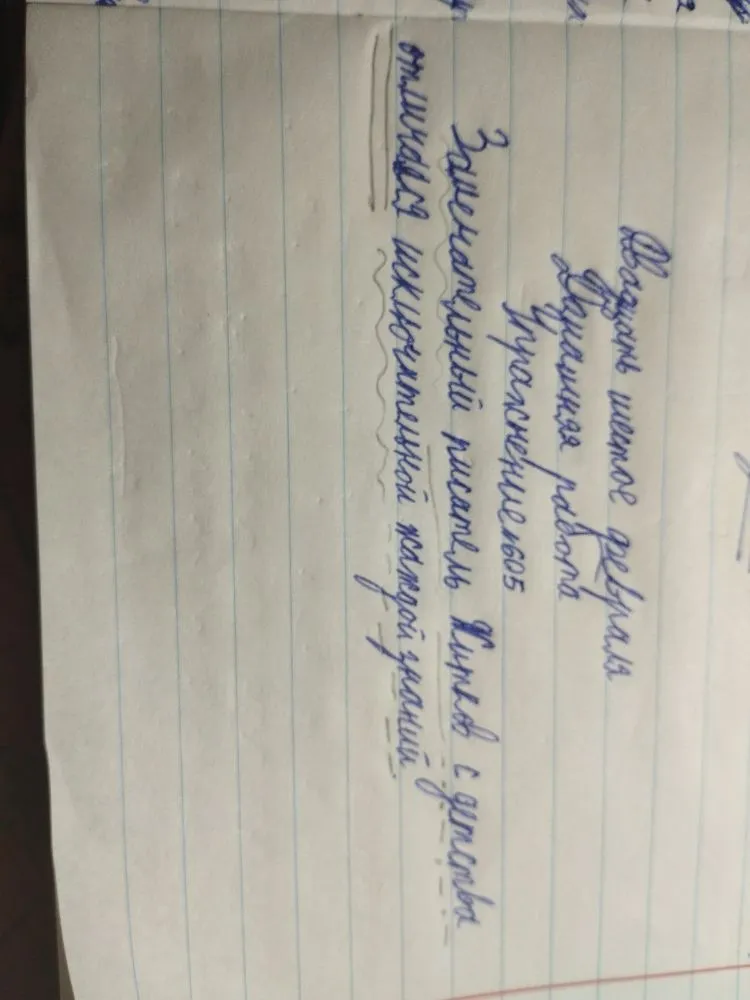 Двадцать шестое февраля
Домашняя работа
Упражнение 605
Замечательный писатель Житков с детства
отличался исключительной жаждой знаний